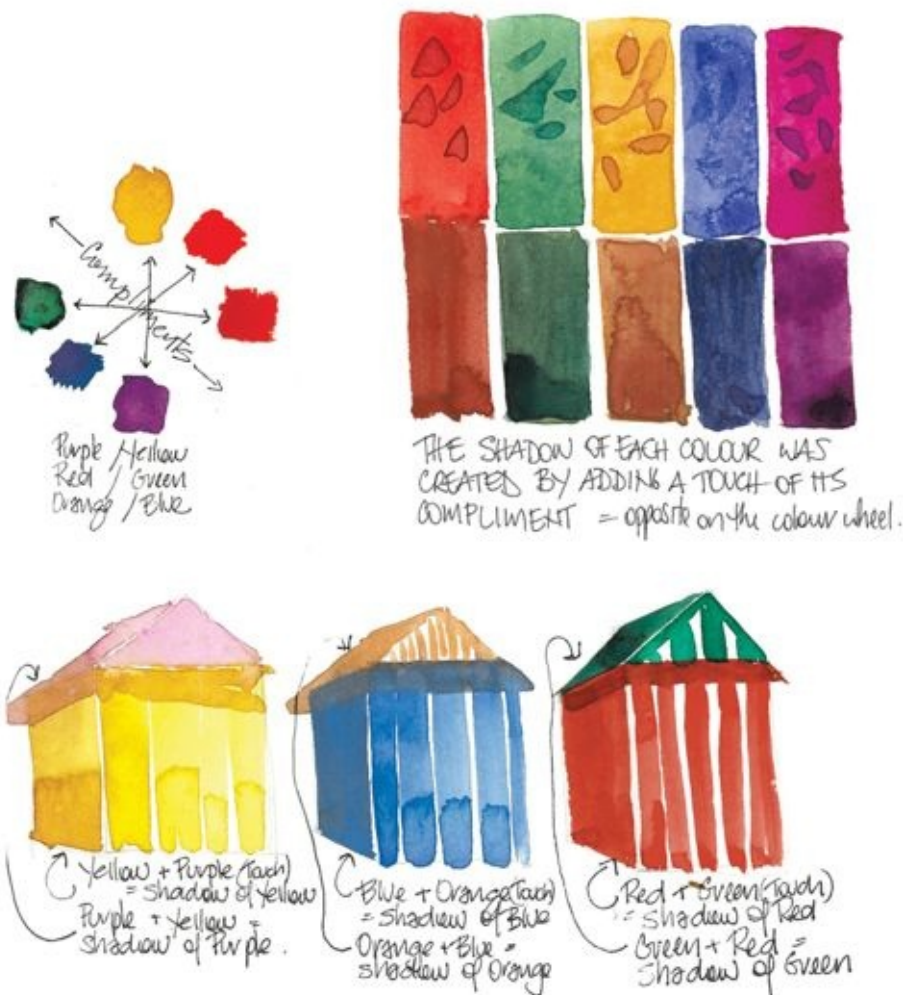 Compliments
Purple / Yellow
Red / Green
Orange / Blue
THE SHADOW OF EACH COLOUR WAS
CREATED BY ADDING A TOUCH OF ITS
COMPLIMENT = opposite on the colour wheel.
Yellow + Purple (Touch)
= shadow of Yellow
Purple + Yellow =
shadow of Purple.
Blue + Orange (Touch)
= Shadow of Blue
Orange + Blue =
shadow of Orange
Red + Green (Touch)
= Shadow of Red
Green + Red =
Shadow of Green